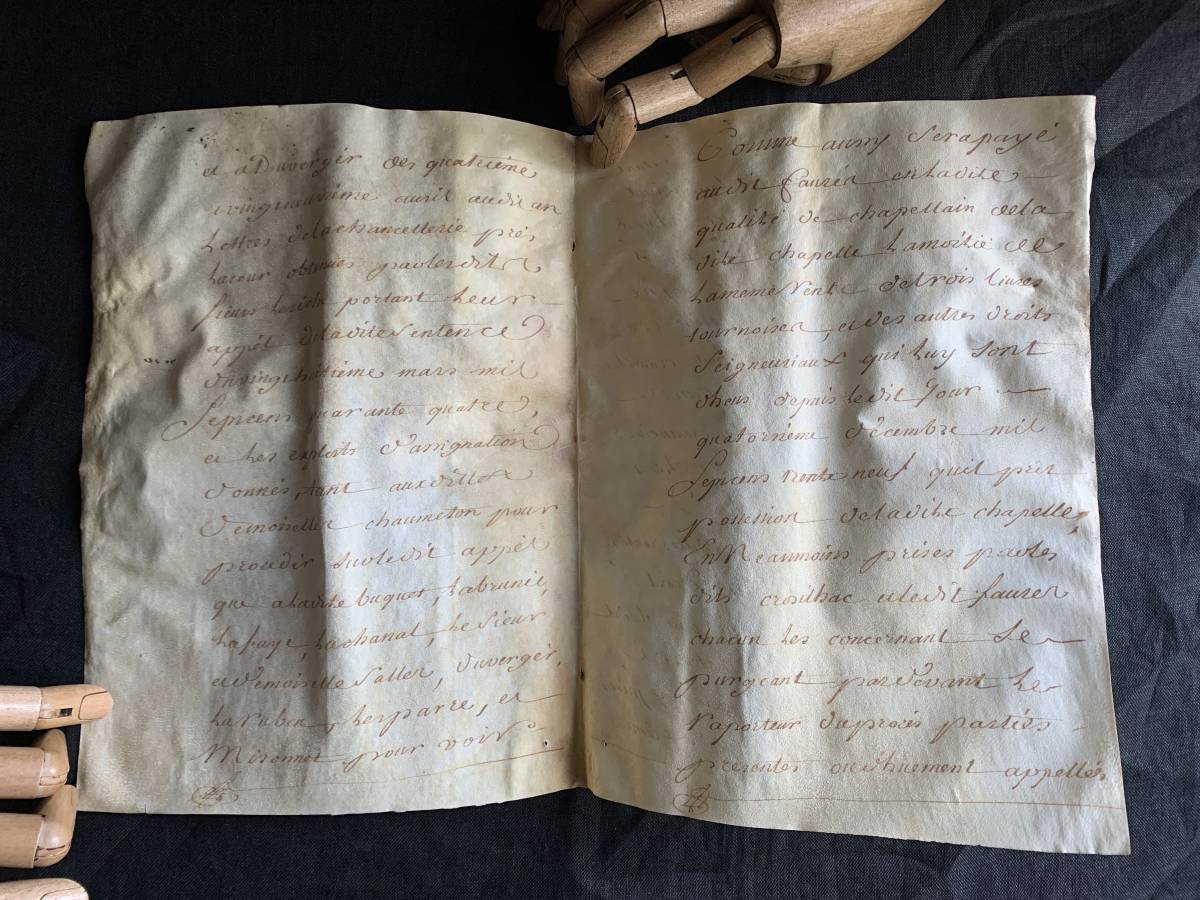 et a Duvergir des quatrième
vingt neuvième avril audit an
Lettres delachancellerie prés
Lacour obtenues parlesdits
sieurs portant Leur
appél deladite Sentence
duvingt huitième mars mil
Septcens quarante quatre,
et Les exploits d'assignation
donnés, tant auxdittes
Demoiselles chaumeton pour
proceder surledit appél
que aladite buquet, Labrunie,
Lafaye, Lachanal, Le Sieur
et Demoiselle Salles, Duvergir,
et
pour voir
Comme aussy Serapayé
audit Faurés enladite
qualité de chapellain dela
dite chapelle Lamoitié de
Lameme Rente detrois Livres
tournoises, et des autres droits
Seigneuriaux qui Luy Sont
dheus depuis ledit Jour
quatorzieme décembre mil
Septcens trente neuf quil prit
possession deladite chapelle,
En Neanmoins prises parles
dits croisilhac et ledit faures
chacun Les concernant Se
purgeant pardevant Le
Raporteur duprocés partiés
presentes ou duhuement appellés